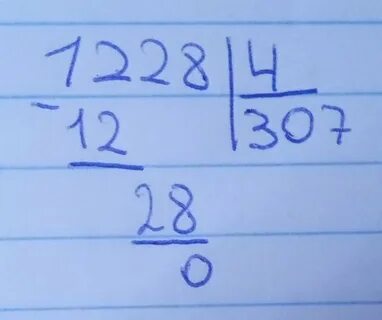 1228 | 4
- 12 | 307
28
0